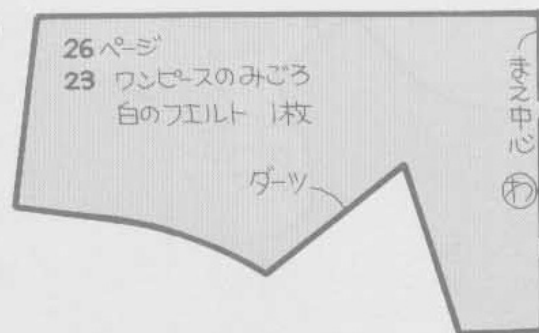 26 ページ
23 ワンピースのみごろ
白のフエルト 1枚
ダーツ
まえ中心 わ